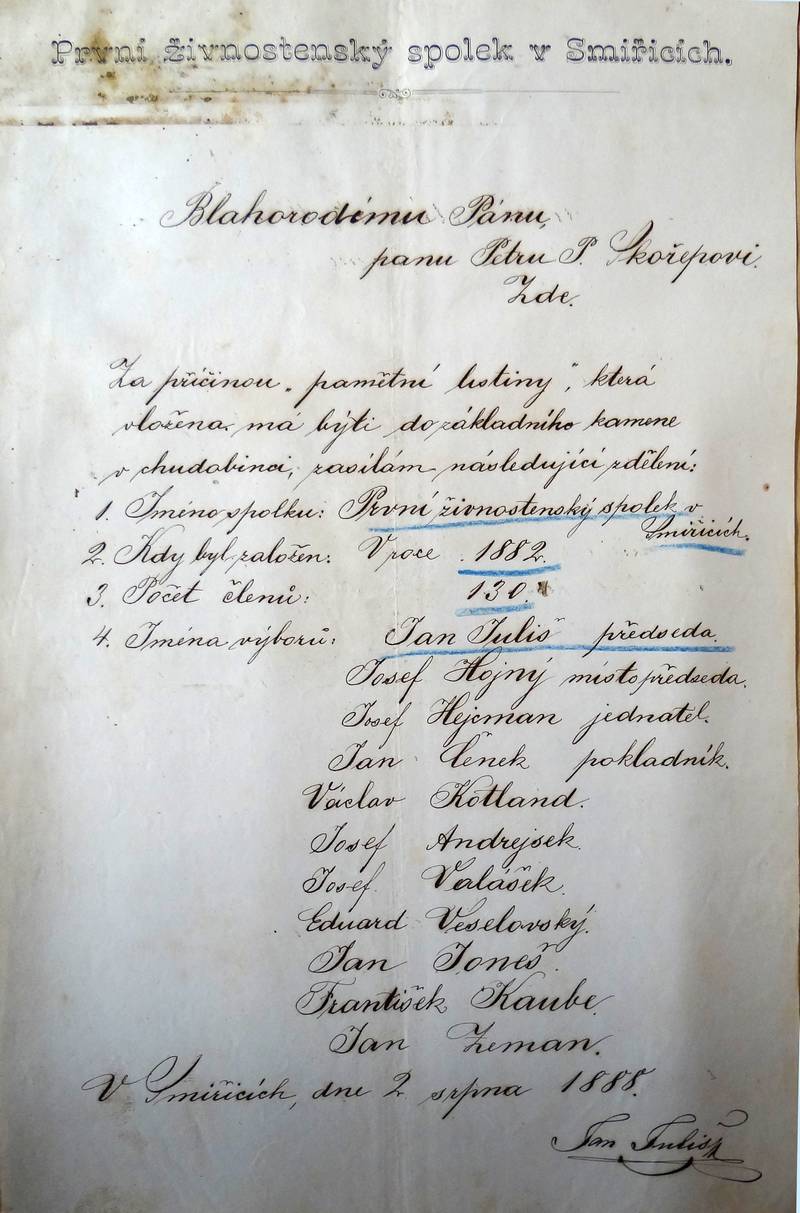 První živnostenský spolek v Smiřicích.
Blahorodému Pánu,
panu Petru P. Skořepovi.
Zde.
Za příčinou „pamětní listiny", která
vložena má býti do základního kamene
v chudobinci, zasílám následující zdělení:
1. Jméno spolku: První živnostenský spolek v
Smiřicích.
2. Kdy byl založen: V roce 1882.
3. Počet členů: 130.
4. Jména výborů: Jan Juliš předseda.
Josef Hojný místopředseda.
Josef Hejcman jednatel.
Jan Čeněk pokladník.
Václav Kotland.
Josef Andrejsek.
Josef Valášek.
Eduard Veselovský.
Jan Joneš.
František Kaube.
Jan Zeman.
V Smiřicích, dne 2 srpna 1888.
Jan Juliš